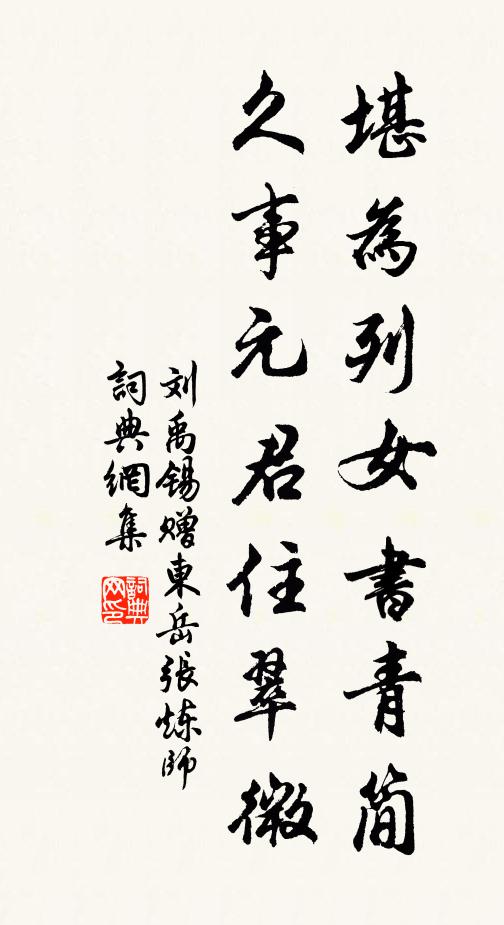 堪為列女書青簡
久事元君住翠微
刘禹锡赠東岳張炼師
詞典網集
詞典網印